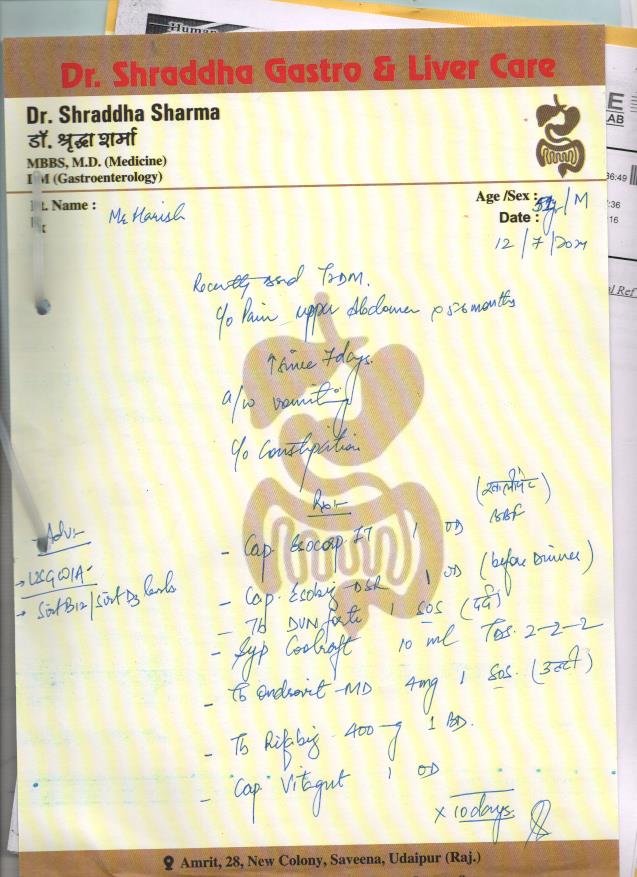 Human
Dr. Shraddha Gastro & Liver Care
Dr. Shraddha Sharma
डॉ. श्रृद्धा शर्मा
MBBS, M.D. (Medicine)
DM (Gastroenterology)
E
LAB
36:49
:36
16
al Ref
Pt. Name : Mr Harish
Age /Sex : /M
Date :
12/7/2021
Recently T2DM.
c/o Pain upper Abdomen x 5-6 months
↑ since 7days.
a/w vomiting
c/o Constipation
Adv:-
→ USG W/A -
→ S.Vit B12/S.Vit D3 levels
(खालीपेट)
- Cap. Esocarp IT 1 OD BBF
- Cap. Esobig DSR 1 OD (before Dinner)
- Tb DVN forte 1 SOS (दर्द)
- Syp Coolraft 10 ml TDS. 2-2-2
- Tb Ondravit-MD 4mg 1 SOS. (उल्टी)
- Tb Rifibig 400mg 1 BD.
- Cap Vitagut 1 OD
x 10days.
Amrit, 28, New Colony, Saveena, Udaipur (Raj.)